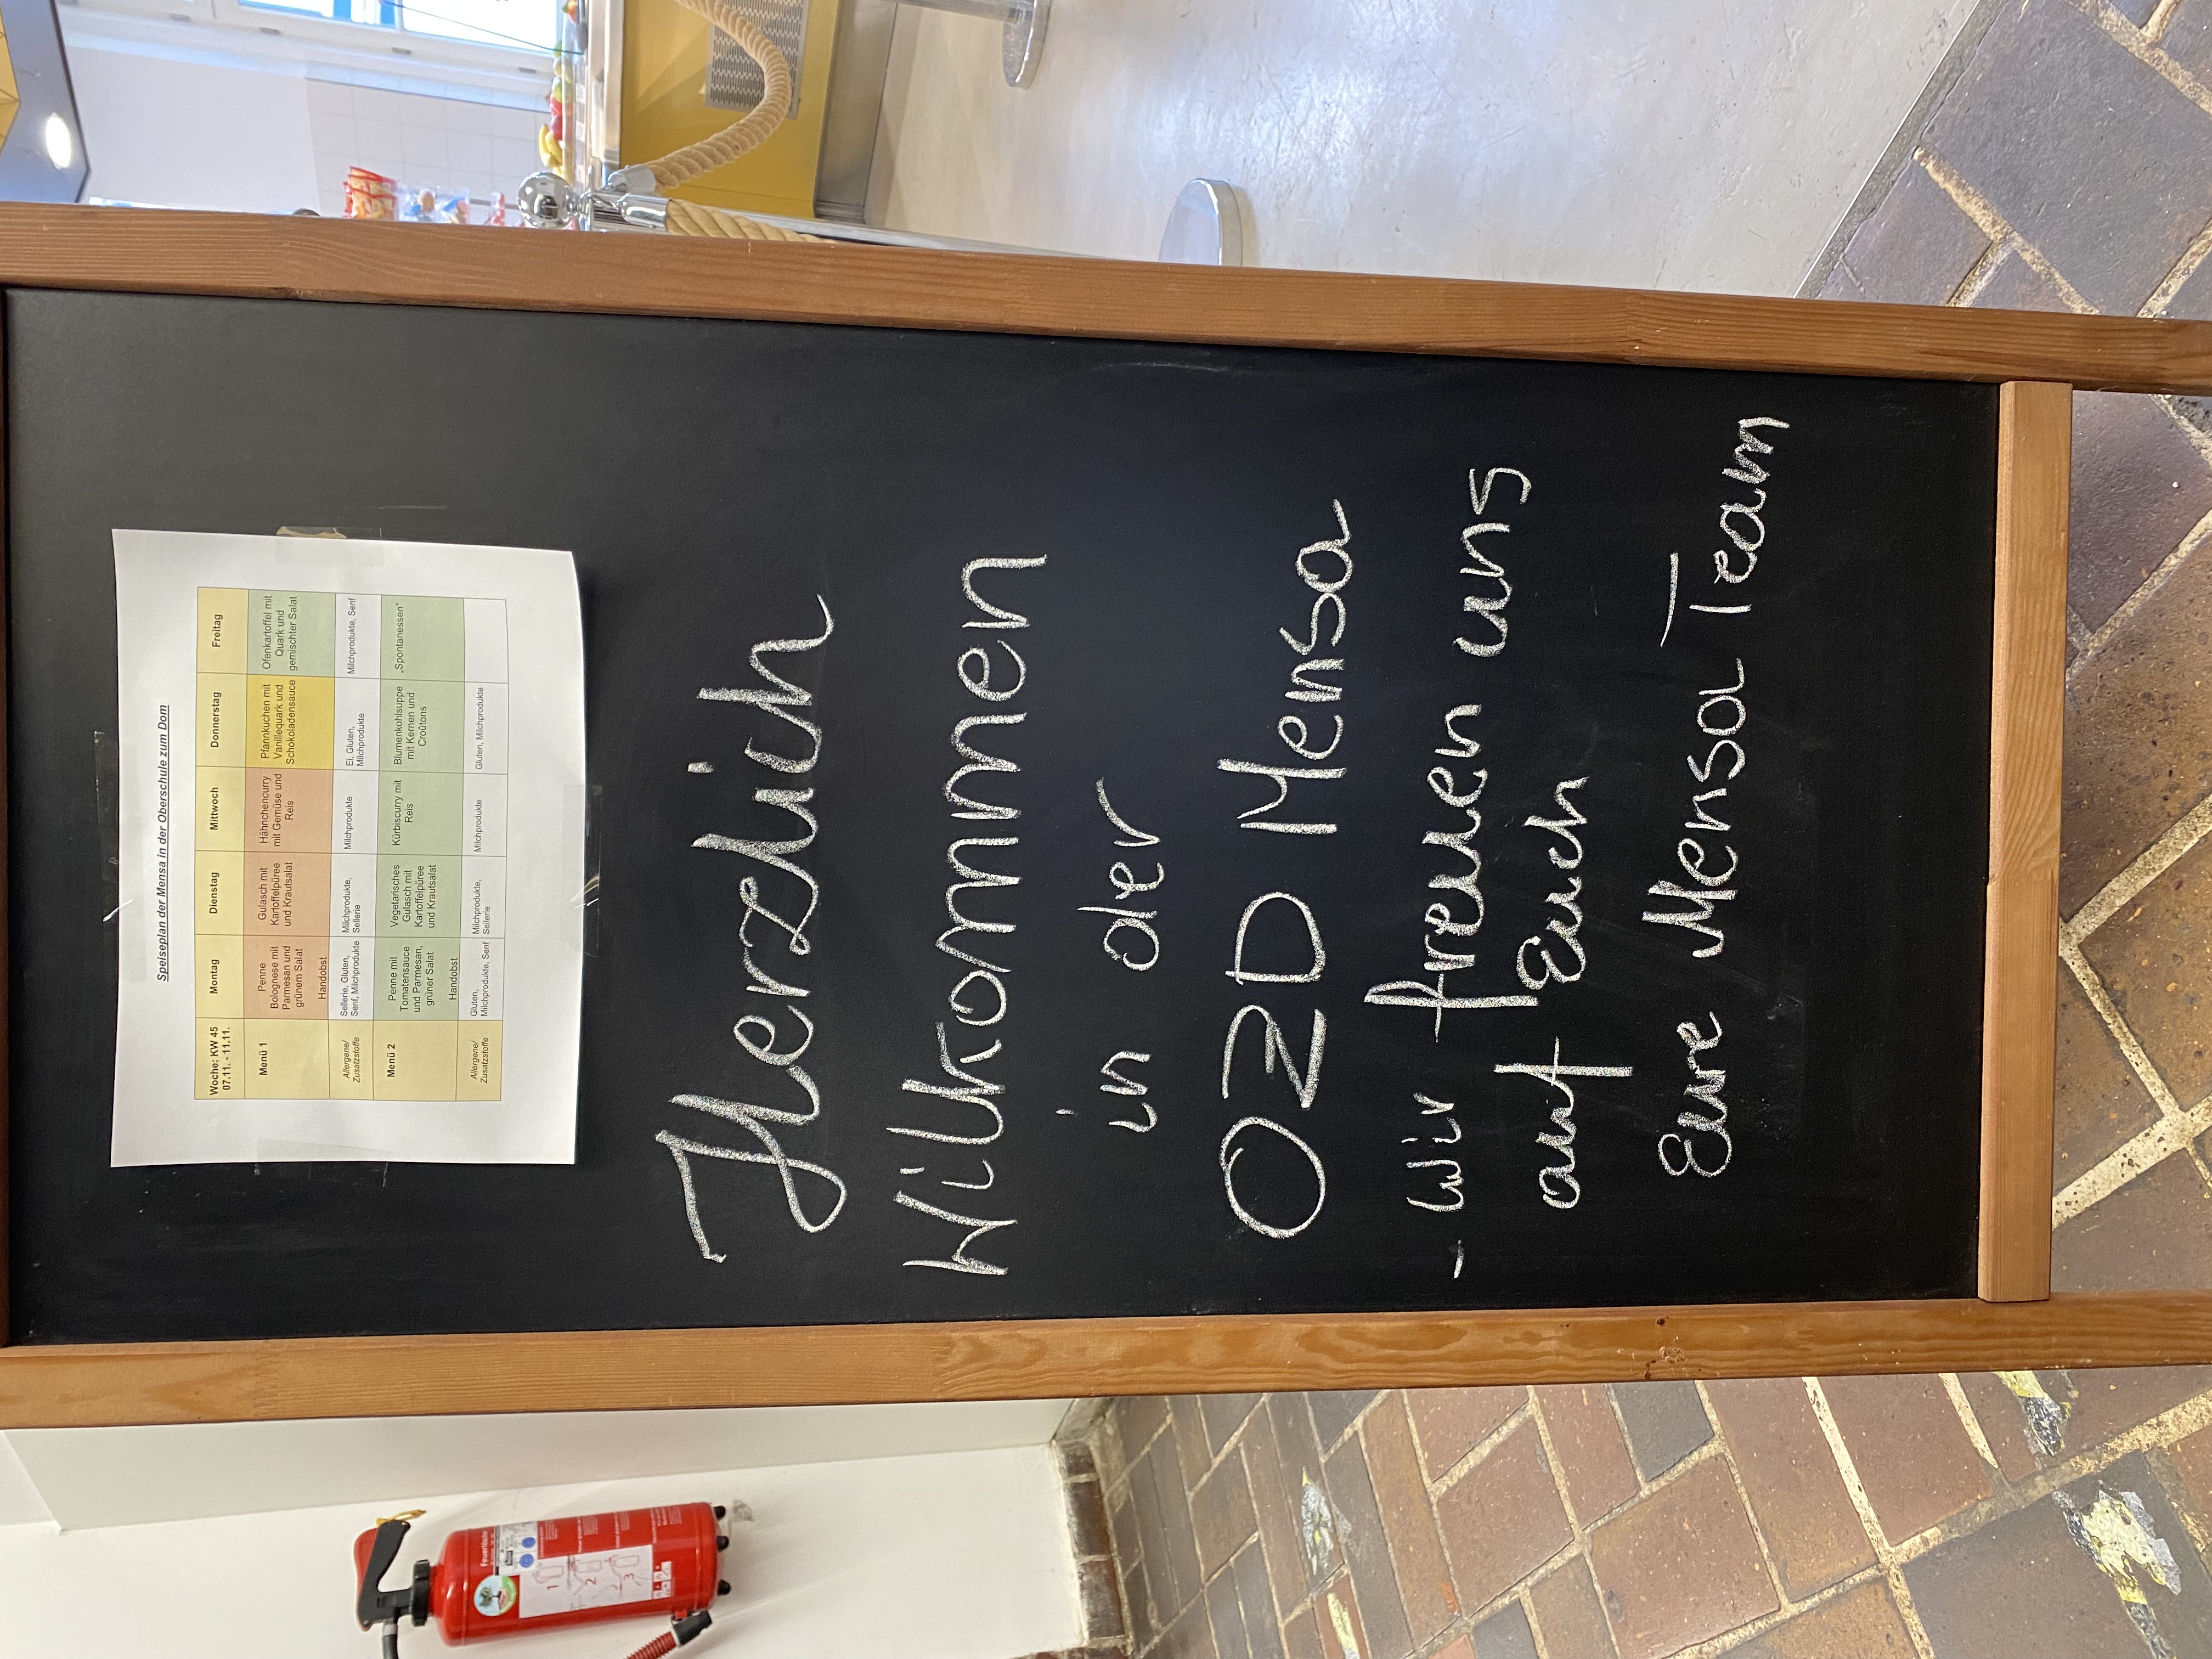 Speiseplan der Mensa in der Oberschule zum Dom
Woche: KW 45 Montag Dienstag Mittwoch Donnerstag Freitag
07.11. - 11.11.
Menü 1
Penne
Bolognese mit
Parmesan und
grünem Salat
Handobst
Gulasch mit
Kartoffelpüree
und Krautsalat
Hähnchencurry
mit Gemüse und
Reis
Pfannkuchen mit
Vanillequark und
Schokoladensauce
Ofenkartoffel mit
Quark und
gemischter Salat
Allergene/
Zusatzstoffe
Sellerie, Gluten,
Senf, Milchprodukte
Milchprodukte,
Sellerie
Milchprodukte
Ei, Gluten,
Milchprodukte
Milchprodukte, Senf
Menü 2
Penne mit
Tomatensauce
und Parmesan,
grüner Salat
Handobst
Vegetarisches
Gulasch mit
Kartoffelpüree
und Krautsalat
Kürbiscurry mit
Reis
Blumenkohlsuppe
mit Kernen und
Croûtons
„Spontanessen"
Allergene/
Zusatzstoffe
Gluten,
Milchprodukte, Senf
Milchprodukte,
Sellerie
Milchprodukte
Gluten, Milchprodukte
Herzlich
Willkommen
in der
OZD Mensa
- Wir freuen uns
auf Euch
Eure Mensa Team
Feuerlöscher
1
2
3